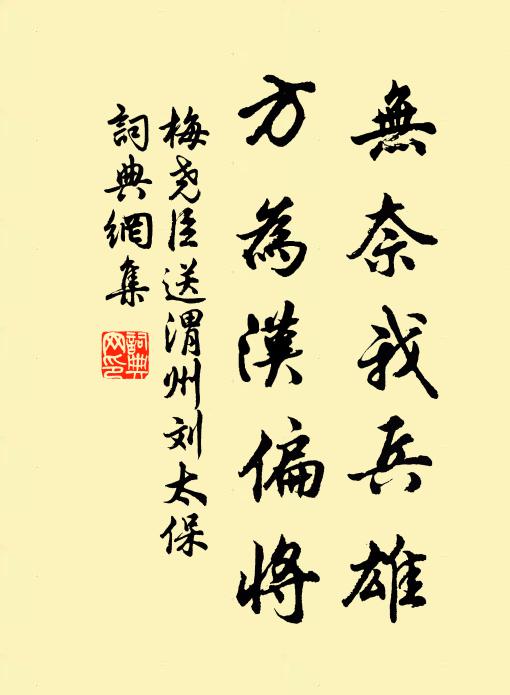 無奈我兵雄
方為漢偏將
梅尧臣送渭州刘太保
詞典網集
詞典网印